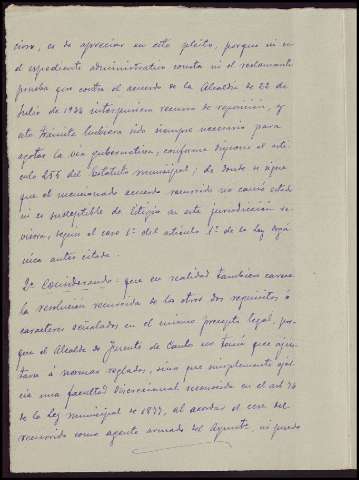 ciosa, es de apreciar en este pleito, porque ni en
el expediente administrativo consta ni el reclamante
prueba que contra el acuerdo de la Alcaldia de 22 de
Julio de 1934 interpusiera recurso de reposición, y
este trámite hubiera sido siempre necesario para
agotar la via gubernativa, conforme dispone el arti-
culo 255 del Estatuto municipal; de donde se sigue
que el mencionado acuerdo recurrido no causó estado
ni es susceptible de litigio en esta jurisdicción re-
visora, según el caso 1º del articulo 1º de la Ley orgá-
nica antes citada.
2º Considerando: que en realidad tambien carece
la resolución recurrida de los otros dos requisitos ó
caracteres señalados en el mismo precepto legal, por-
que el Alcalde de Fuente de Cantos no tenía que ajus-
tarse á normas regladas, sino que simplemente ejer-
cia una facultad discrecional reconocida en el art 74
de la Ley Municipal de 1877, al acordar el cese del
recurrido como agente armado del Ayuntº, ni puede